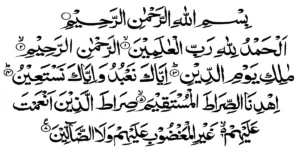 بِسْمِ اللهِ الرَّحْمٰنِ الرَّحِيْمِ
اَلْحَمْدُ لِلّٰهِ رَبِّ الْعٰلَمِيْنَ ۝ الرَّحْمٰنِ الرَّحِيْمِ ۝
مٰلِكِ يَوْمِ الدِّيْنِ ۝ اِيَّاكَ نَعْبُدُ وَاِيَّاكَ نَسْتَعِيْنُ ۝
اِهْدِنَا الصِّرَاطَ الْمُسْتَقِيْمَ ۝ صِرَاطَ الَّذِيْنَ اَنْعَمْتَ
عَلَيْهِمْ ۝ غَيْرِ الْمَغْضُوْبِ عَلَيْهِمْ وَلَا الضَّآلِّيْنَ ۝